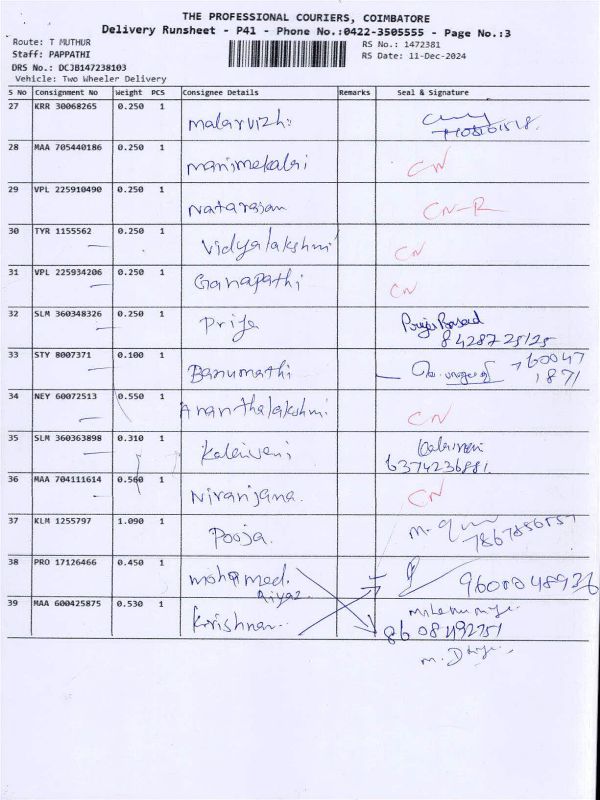 THE PROFESSIONAL COURIERS, COIMBATORE
Delivery Runsheet - P41 - Phone No.:0422-3505555 - Page No.:3
Route: T MUTHUR
RS No.: 1472381
Staff: PAPPATHI
RS Date: 11-Dec-2024
DRS No.: DCJB147238103
Vehicle: Two Wheeler Delivery
S No Consignment No Weight PCS Consignee Details Remarks Seal & Signature
27 KRR 30068265 0.250 1 Malarvizhi
28 MAA 705440186 0.250 1 Manimekalai CN
29 VPL 225910490 0.250 1 Natarajan CN-R
30 TYR 1155562 0.250 1 Vidyalakshmi CN
31 VPL 225934206 0.250 1 Ganapathi CN
32 SLM 360348326 0.250 1 Priya
84287 25125
33 STY 8007371 0.100 1 Banumathi 60047
1871
34 NEY 60072513 0.550 1 Ananthalakshmi CN
35 SLM 360363898 0.310 1 Kalaivani Kalaivani
6374236881
36 MAA 704111614 0.560 1 Niranjana. CN
37 KLM 1255797 1.090 1 Pooja.
38 PRO 17126466 0.450 1 Mohamed.
Aiyaz
39 MAA 600425875 0.530 1 Krishnan..
8608492751